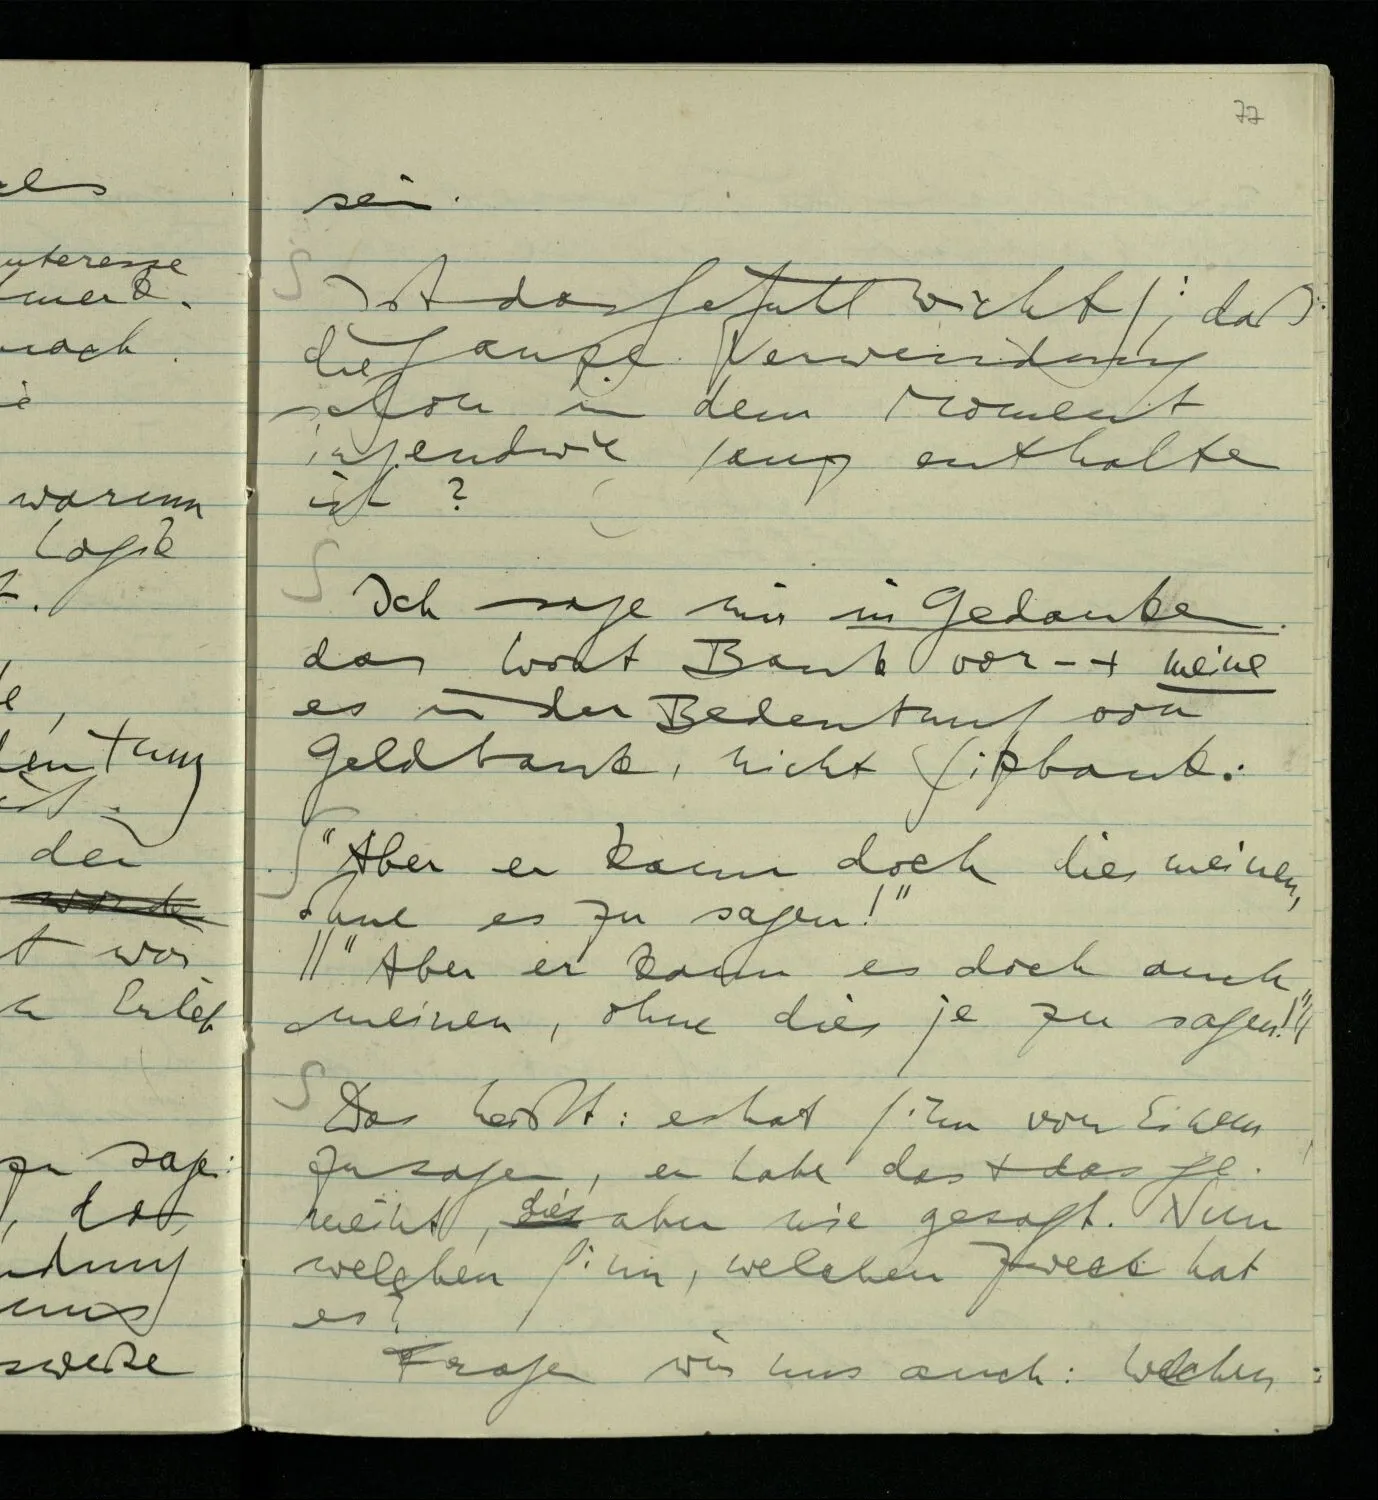 als
interesse
nach.
warum
Logik
der
t war
Erleb
zu sage:
, daß
77
sein.
Ist das Gefühl nicht, daß
die ganze Verwendung
schon in dem Moment
irgendwie enthalten
ist?
Ich sage mir in Gedanken
das Wort Bank vor – + meine
es in der Bedeutung von
Geldbank, nicht Sitzbank.
"Aber er kann doch dies meinen,
ohne es zu sagen!"
"Aber er kann es doch auch
meinen, ohne dies je zu sagen!"
Das heißt: es hat Sinn von Einem
zu sagen, er habe das + das ge-
meint, dies aber nie gesagt. Nun
welchen Sinn, welchen Zweck hat
es?
Fragen wir uns auch: Welchen